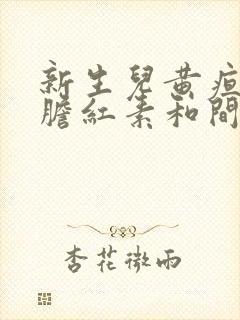 新生兒黃疸
膽紅素和間
杏花微雨